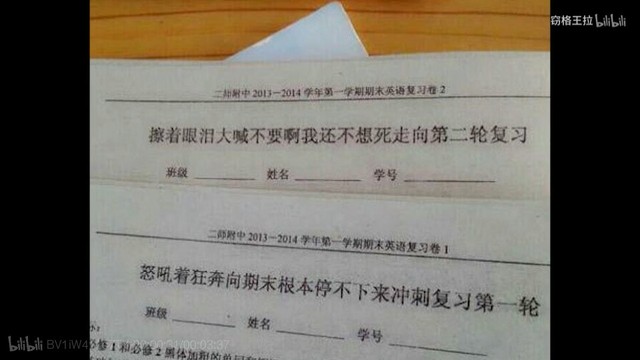 窃格王拉 bilibili
二师附中 2013－2014 学年第一学期期末英语复习卷 2
擦着眼泪大喊不要啊我还不想死走向第二轮复习
班级 ________ 姓名 ________ 学号 ________
二师附中 2013－2014 学年第一学期期末英语复习卷 1
怒吼着狂奔向期末根本停不下来冲刺复习第一轮
班级 ________ 姓名 ________ 学号 ________
必修 1 和必修 2 黑体加粗的单词和
bilibili